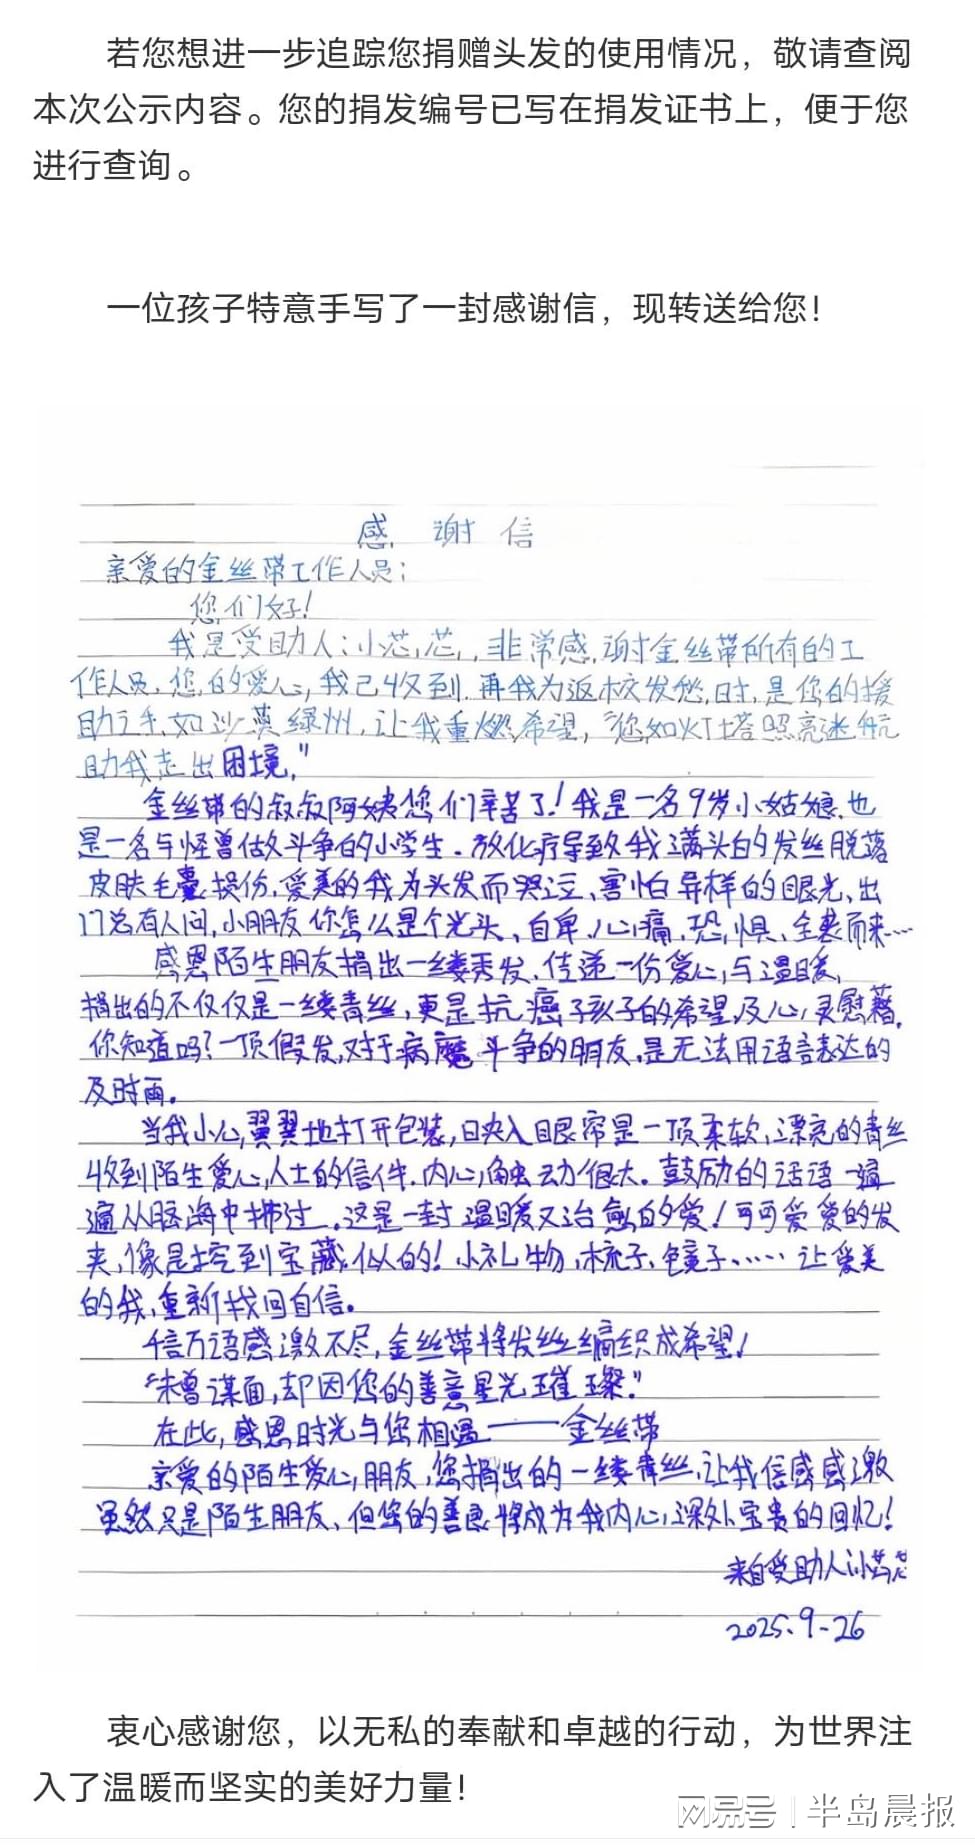 若您想进一步追踪您捐赠头发的使用情况，敬请查阅
本次公示内容。您的捐发编号已写在捐发证书上，便于您
进行查询。
一位孩子特意手写了一封感谢信，现转送给您！
感 谢 信
亲爱的金丝带工作人员：
您们好！
我是受助人：小芯芯，非常感谢金丝带所有的工
作人员，您的爱心，我已收到，再我为返校发愁时，是您的援
助之手，如沙漠绿州，让我重燃希望，“您如灯塔照亮迷航
助我走出困境，”
金丝带的叔叔阿姨您们辛苦了！我是一名9岁小姑娘，也
是一名与怪兽做斗争的小学生。放化疗导致我满头的发丝脱落
皮肤毛囊损伤，爱美的我为头发而哭泣、害怕异样的眼光，出
门总有人问，小朋友你怎么是个光头、自卑、心痛、恐惧、全袭而来…
感恩陌生朋友捐出一缕秀发，传递一份爱心，与温暖，
捐出的不仅仅是一缕青丝，更是抗癌子孩子的希望及心灵慰藉，
你知道吗？一顶假发，对于病魔斗争的朋友，是无法用语言表达的
及时雨。
当我小心翼翼地打开包装，映入眼帘是一顶柔软，漂亮的青丝
收到陌生爱心人士的信件，内心触动很大。鼓励的话语一遍
遍从脑海中拂过，这是一封温暖又治愈的爱！可可爱爱的发
夹，像是挖到宝藏似的！小礼物，梳子，镜子、…… 让爱美
的我，重新找回自信。
千言万语感激不尽，金丝带将发丝编织成希望！
“未曾谋面，却因您的善意星光璀璨。”
在此，感恩时光与您相遇——金丝带
亲爱的陌生爱心朋友，您捐出的一缕青丝，让我倍感感激
虽然只是陌生朋友、但您的善良将成为我内心深处宝贵的回忆！
来自受助人小芯芯
2025.9-26
衷心感谢您，以无私的奉献和卓越的行动，为世界注
入了温暖而坚实的美好力量！
网易号 | 半岛晨报